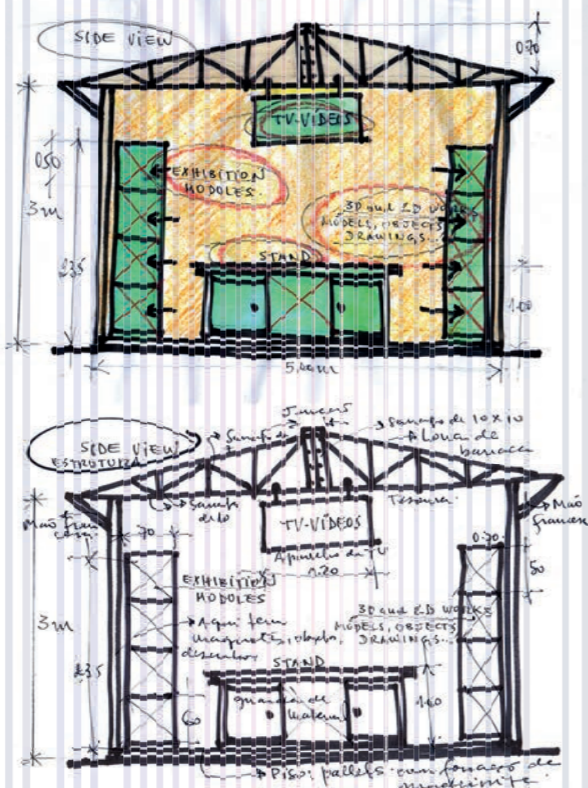 SIDE VIEW
0.70
TV-VÍDEOS
EXHIBITION
MODOLES.
3D and 2D WORKS
MODELS, OBJECTS
DRAWINGS...
STAND
050
3m
235
1.00
5,00m
SIDE VIEW
ESTRUTURA
Sarrafo de 10x10
Lona de
barraca
Sarrafo
Tesoura
Mão
francesa
Mão
francesa
.70
0.70
TV-VÍDEOS
Aparelho de TV
1.20
50
EXHIBITION
MODOLES
3D and 2D WORKS
MODELS, OBJECTS
DRAWINGS...
Aqui tem
maquetes, objetos,
desenhos
3m
235
STAND
60
material
Piso: pallets com forração de